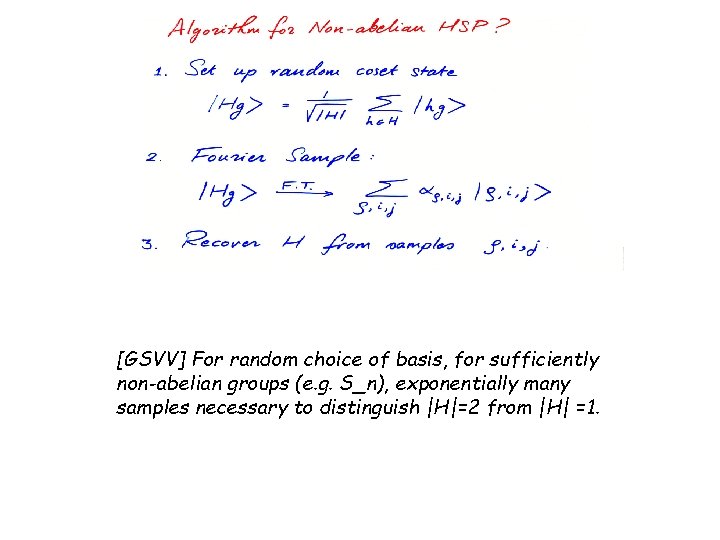 Algorithm for Non-abelian HSP?
1. Set up random coset state
|Hg> = 1/√|H| Σ_{h∈H} |hg>
2. Fourier Sample:
|Hg> —F.T.→ Σ_{ρ,i,j} α_{ρ,i,j} |ρ,i,j>
3. Recover H from samples ρ,i,j.
[GSVV] For random choice of basis, for sufficiently
non-abelian groups (e.g. S_n), exponentially many
samples necessary to distinguish |H|=2 from |H| =1.